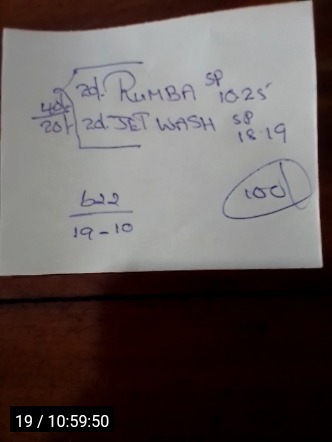 20/. RUMBA SP 10.25
40/.
20/. 20/. JET WASH SP 18.19
622
19-10
100/
19 / 10:59:50